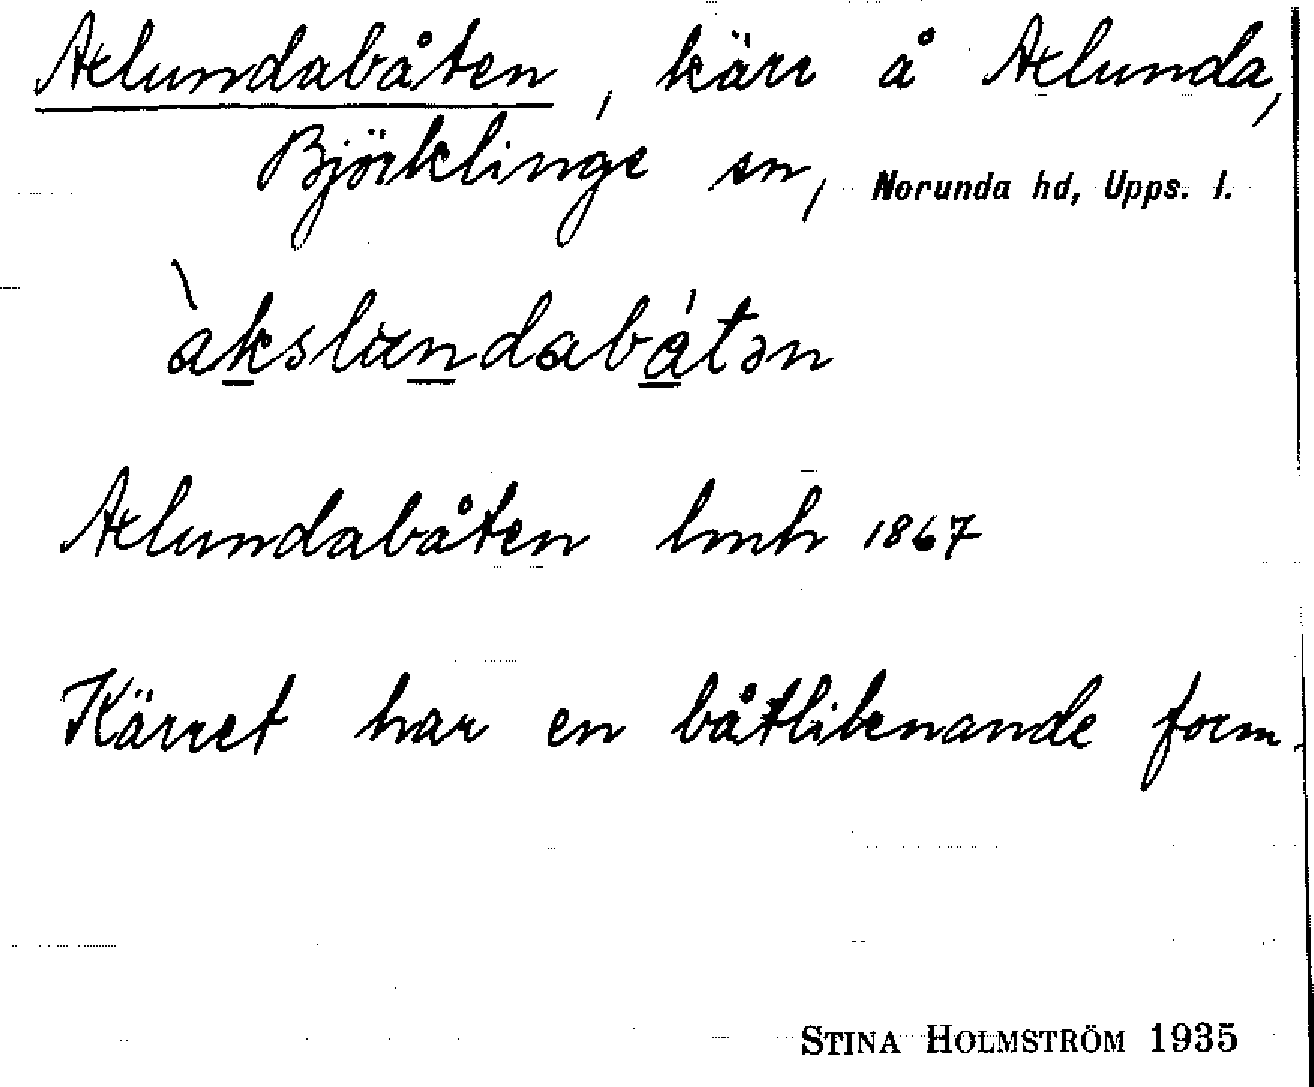 Axlundabåten, kärr å Axlunda,
Björklinge sn, Norunda hd, Upps. l.
àkslundabátən
Axlundabåten lmh 1867
Kärret har en båtliknande form.
STINA HOLMSTRÖM 1935